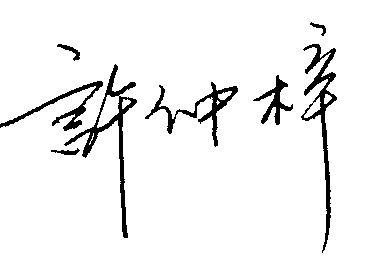 許仲梓